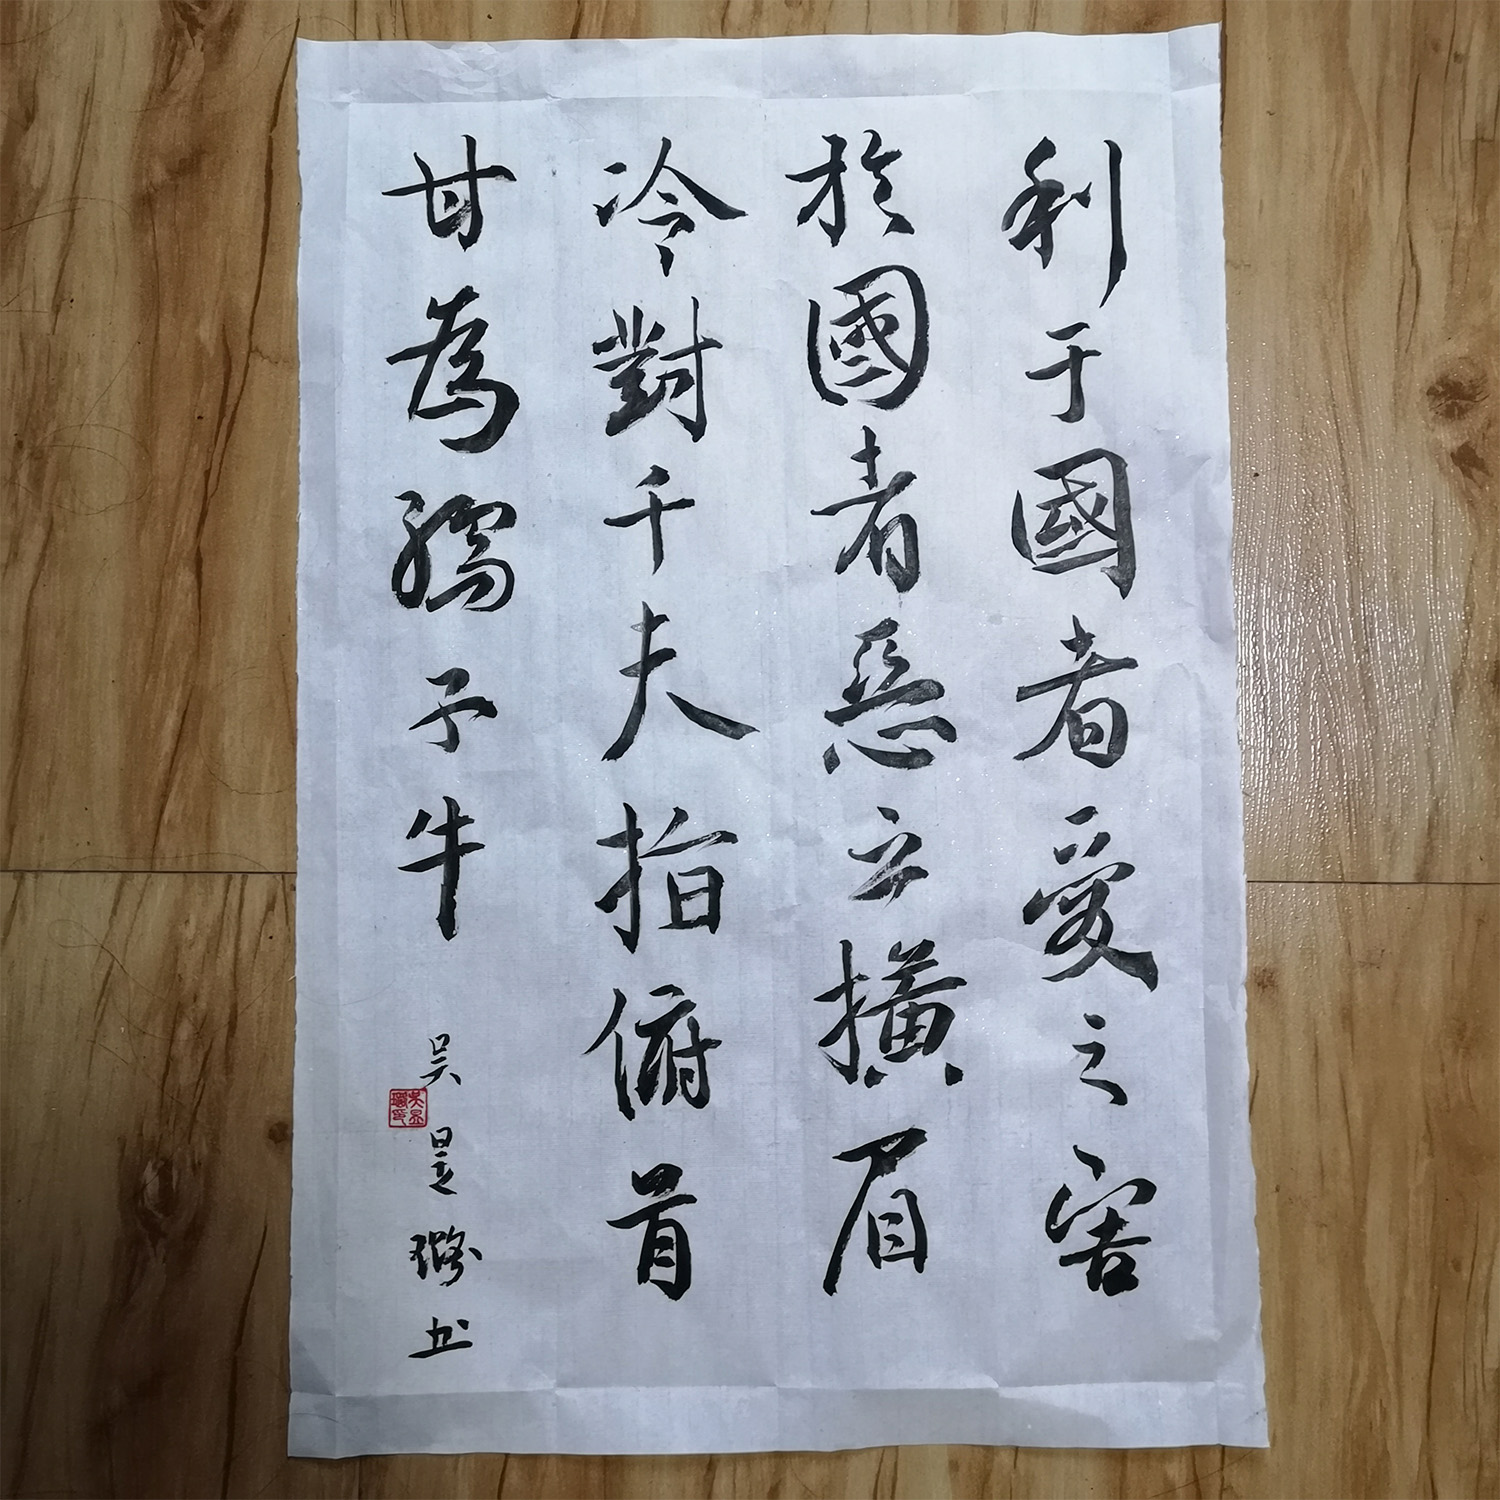 利于國者爱之害
於國者惡之橫眉
冷對千夫指俯首
甘為孺子牛
吴昱璐书